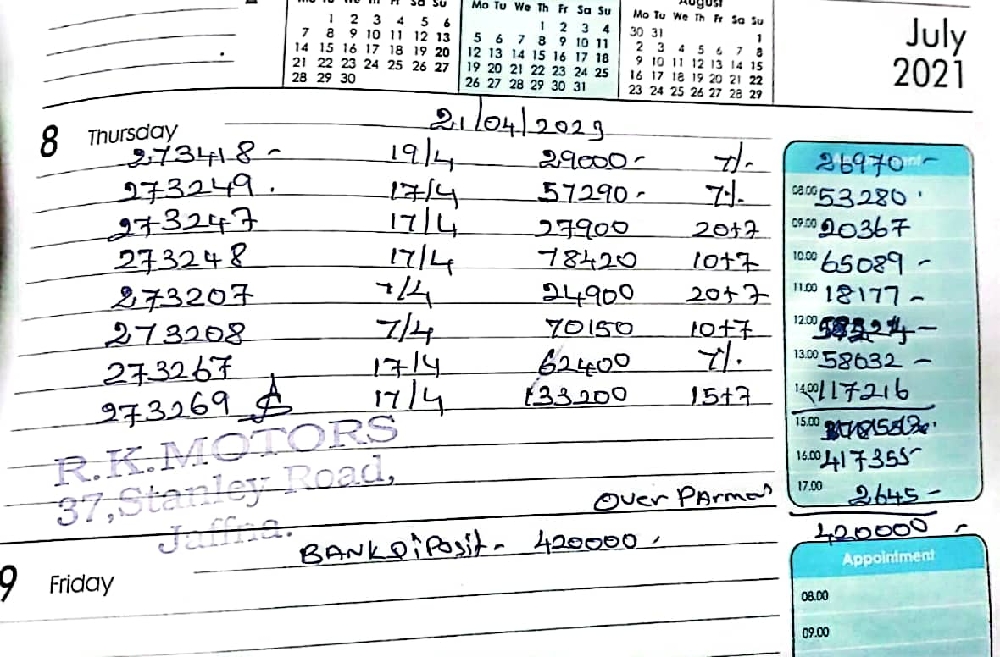 Mo Tu We Th Fr Sa Su
1 2 3 4 5 6
7 8 9 10 11 12 13
14 15 16 17 18 19 20
21 22 23 24 25 26 27
28 29 30
Mo Tu We Th Fr Sa Su
1 2 3 4
5 6 7 8 9 10 11
12 13 14 15 16 17 18
19 20 21 22 23 24 25
26 27 28 29 30 31
August
Mo Tu We Th Fr Sa Su
30 31 1
2 3 4 5 6 7 8
9 10 11 12 13 14 15
16 17 18 19 20 21 22
23 24 25 26 27 28 29
July
2021
8 Thursday 21/04/2023
273418 - 19/4 29000 - 7%. 26970 -
273249 . 17/4 57290 - 7%. 08.00 53280 .
273247 17/4 27900 20+7 09.00 20367
273248 17/4 78420 10+7 10.00 65089 -
273207 7/4 24900 20+7 11.00 18177 -
273208 7/4 70150 10+7 12.00
273267 17/4 62400 7%. 13.00 58032 -
273269 17/4 133200 15+7 14.00 117216
R.K.MOTORS 15.00
37,Stanley Road, 16.00 417355
Jaffna. Over 17.00 2645 -
BANK DiPosit - 420000 . 420000 -
9 Friday Appointment
08.00
09.00